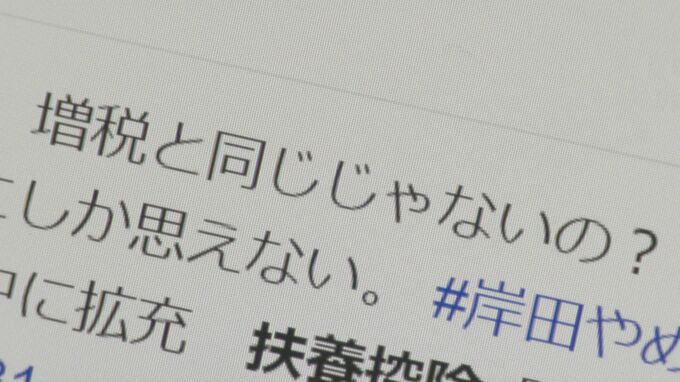 増税と同じじゃないの？
にしか思えない。 #岸田やめ
中に拡充 扶養控除
31